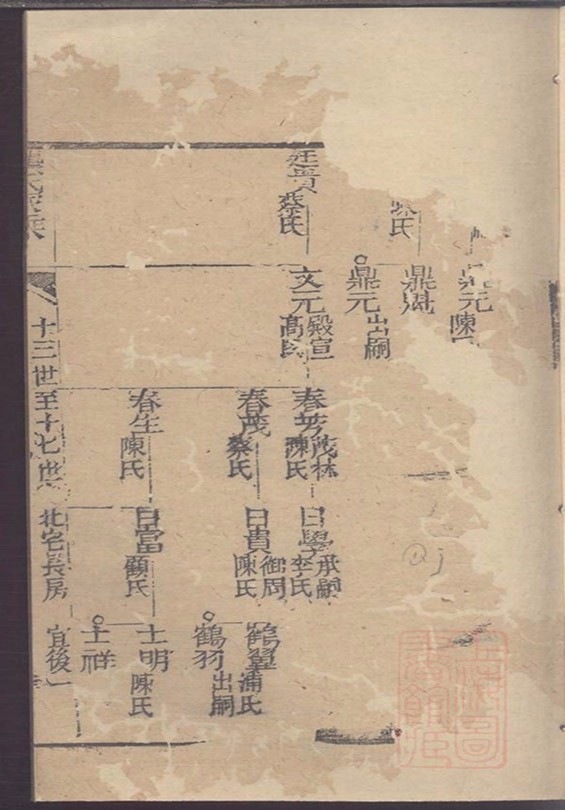 氏
鼎元
陳
鼎
鼎元
出嗣
廷貴
蔡氏
文元
殿宣
高氏
春芳
茂林
陳氏
春茂
蔡氏
春生
陳氏
日學
承嗣
李氏
日貴
御周
陳氏
日當
顧氏
鶴翼
浦氏
鶴羽
出嗣
士明
陳氏
士祥
十三世至十七世
北宅長房
宜後一